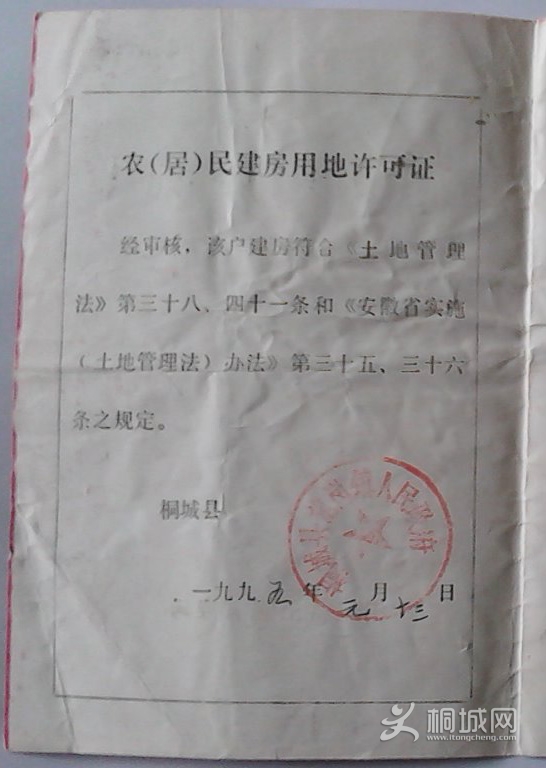 农(居)民建房用地许可证
经审核，该户建房符合《土地管理
法》第三十八、四十一条和《安徽省实施
(土地管理法)办法》第三十五、三十六
条之规定。
桐城县
人民政府
一九九五年元月十三日
桐城网
www.itongcheng.com